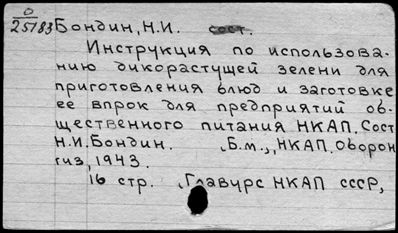 0
25783
Бондин, Н.И. сост.
Инструкция по использова-
нию дикорастущей зелени для
приготовления блюд и заготовке
ее впрок для предприятий об-
щественного питания НКАП. Сост
Н.И. Бондин. Б.м., НКАП. Оборон
гиз, 1943.
16 стр. Главурс НКАП СССР,